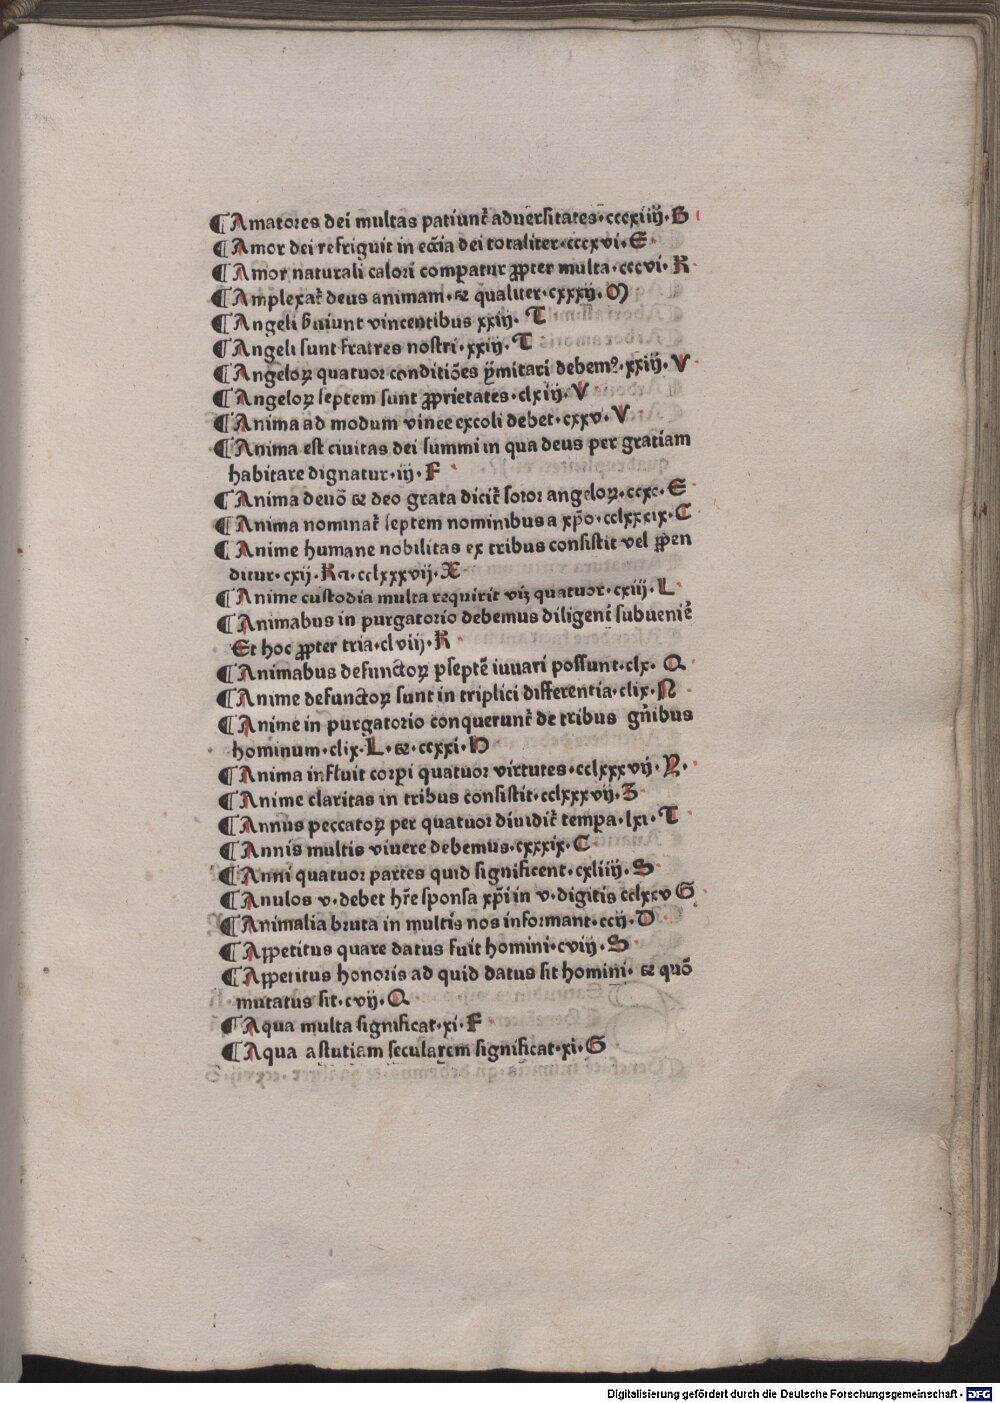 ¶Amatores dei multas patiunt̃ aduersitates·cccxiiij·B
¶Amor dei refriguit in ecc̃ia dei totaliter·cccxvi·E
¶Amor naturali calori compatur ꝓpter multa·cccvi·R
¶Amplexat̃ deus animam·⁊ qualiter·cxxxij·M
¶Angeli ẜuiunt vincentibus xxiij·T
¶Angeli sunt fratres nostri·xxiij·T
¶Angeloꝝ quatuor conditiões ẏmitari debemꝰ·xxiij·V
¶Angeloꝝ septem sunt ꝓprietates·clxiij·V
¶Anima ad modum vinee excoli debet·cxxv·V
¶Anima est ciuitas dei summi in qua deus per gratiam
habitare dignatur·iij·F
¶Anima deuõ ⁊ deo grata dicit̃ soror angeloꝝ·ccxc·E
¶Anima nominat̃ septem nominibus a xp̃o·cclxxxix·C
¶Anime humane nobilitas ex tribus consistit vel ꝓpen
ditur·cxij·R⁊·cclxxxvij·X
¶Anime custodia multa requirit vi⁊ quatuor·cxiij·L
¶Animabus in purgatorio debemus diligent̃ subuenir̃
Et hoc ꝓpter tria·clviij·R
¶Animabus defunctoꝝ p septẽ iuuari possunt·clx·Q
¶Anime defunctoꝝ sunt in triplici differentia·clix·N
¶Anime in purgatorio conquerunt̃ de tribus gñibus
hominum·clix·L·⁊·ccxxi·D
¶Anima influit corpi quatuor virtutes·cclxxxvij·Y·
¶Anime claritas in tribus consistit·cclxxxvij·Z
¶Annus peccatoꝝ per quatuor diuidit̃ tempa·lxi·T
¶Annis multis viuere debemus·cxxxix·C
¶Anni quatuor partes quid significent·cxliiij·S
¶Anulos v·debet hr̃e sponsa xp̃i in v·digitis cclxxv G
¶Animalia bruta in multis nos informant·ccij·D
¶Appetitus quare datus fuit homini·cviij·S
¶Appetitus honoris ad quid datus sit homini·⁊ quõ
mutatus sit·cvij·Q
¶Aqua multa significat·xi·F
¶Aqua astutiam secularem significat·xi·G
Digitalisierung gefördert durch die Deutsche Forschungsgemeinschaft - DFG